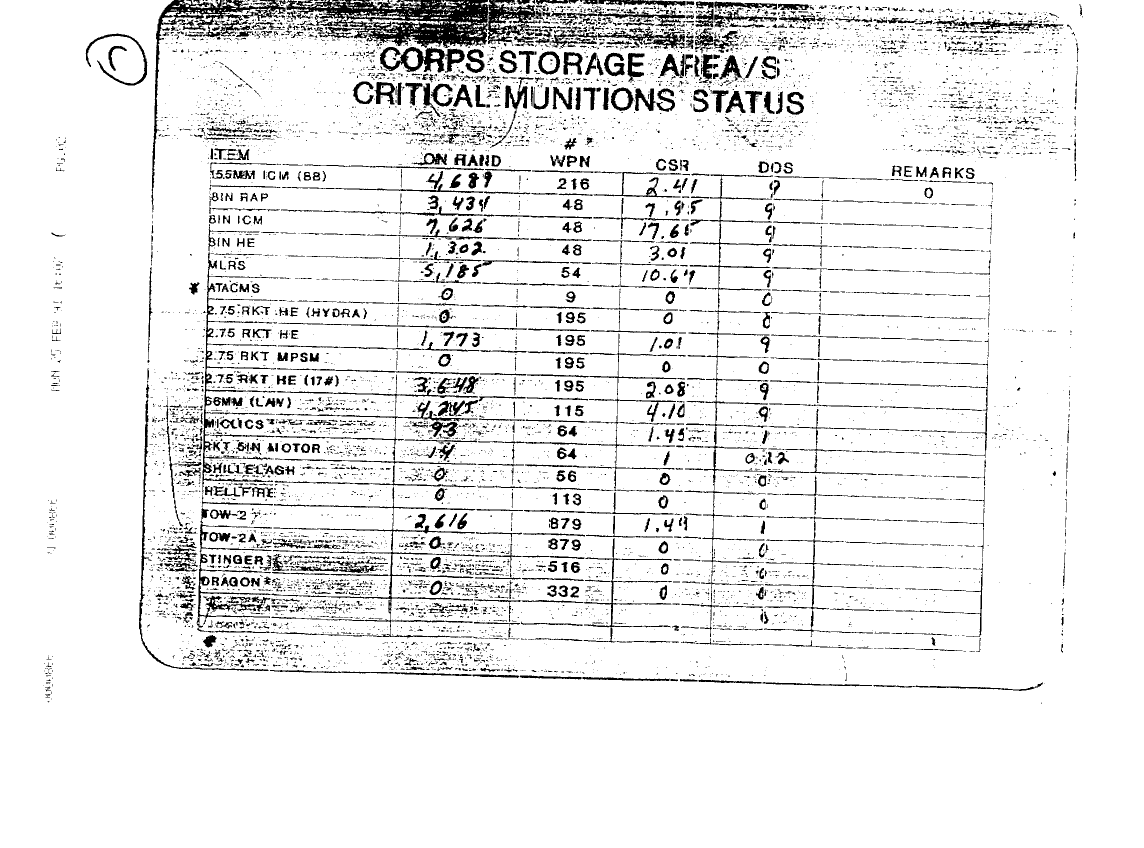 CORPS STORAGE AREA/S
CRITICAL MUNITIONS STATUS
ITEM ON HAND # WPN CSR DOS REMARKS
155MM ICM (BB) 4,689 216 2.41 9 0
8IN RAP 3,434 48 7.95 9
8IN ICM 7,626 48 17.65 9
8IN HE 1,302 48 3.01 9
MLRS 5,185 54 10.67 9
* ATACMS 0 9 0 0
2.75 RKT HE (HYDRA) 0 195 0 0
2.75 RKT HE 1,773 195 1.01 9
2.75 RKT MPSM 0 195 0 0
2.75 RKT HE (17#) 3,648 195 2.08 9
66MM (LAW) 4,245 115 4.10 9
MICLICS 93 64 1.45 1
RKT 5IN MOTOR 14 64 1 0.22
SHILLELAGH 0 56 0 0
HELLFIRE 0 113 0 0
TOW-2 2,616 879 1.49 1
TOW-2A 0 879 0 0
STINGER 0 516 0 0
DRAGON * 0 332 0 0
0
MON 25 FEB 91
PG.02